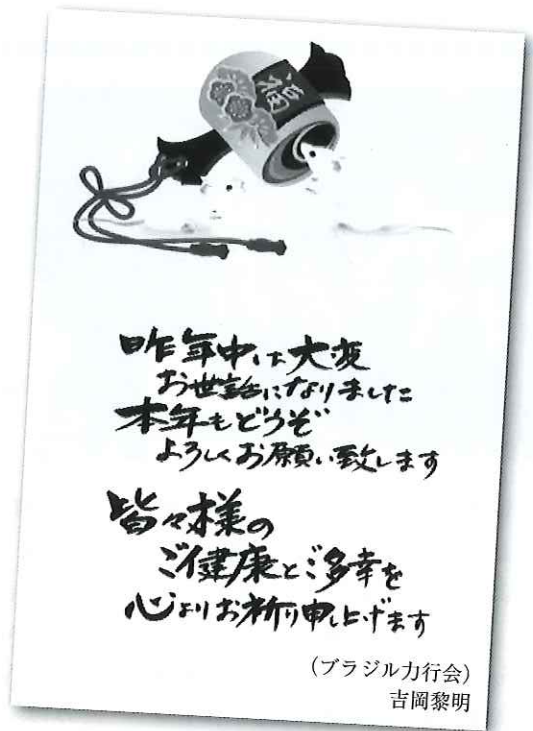 福
昨年中は大変
お世話になりました
本年もどうぞ
よろしくお願い致します
皆々様の
ご健康とご多幸を
心よりお祈り申し上げます
(ブラジル力行会)
吉岡黎明